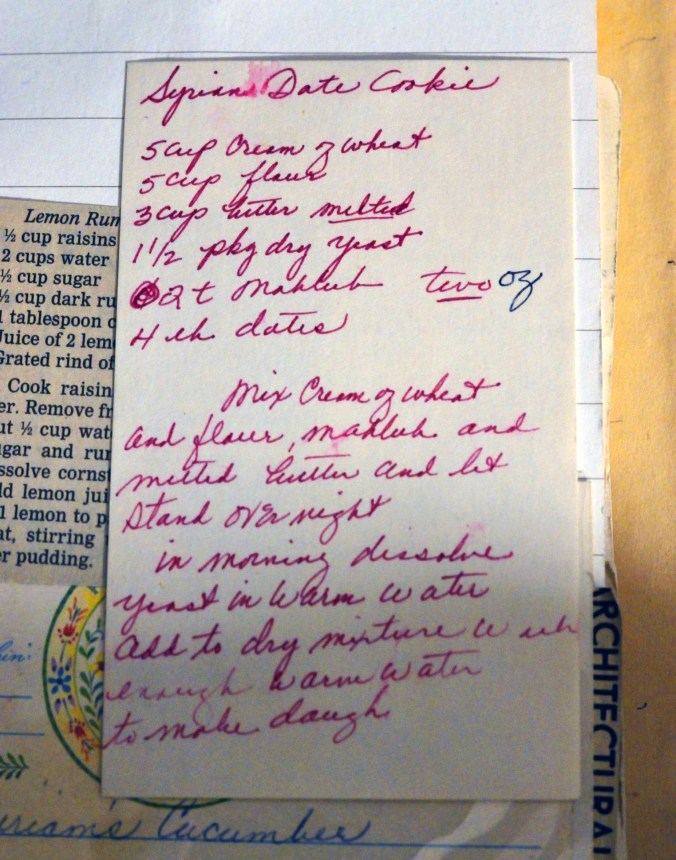 Syrian Date Cookie
5 cup Cream of wheat
5 cup flour
3 cup butter melted
1 1/2 pkg dry yeast
2 t mahleb two oz
4 ch dates
Mix Cream of wheat
and flour, mahleb and
melted butter and let
stand over night
in morning dissolve
yeast in warm water
add to dry mixture with
enough warm water
to make dough
Lemon Rum
½ cup raisins
2 cups water
½ cup sugar
½ cup dark ru
1 tablespoon c
Juice of 2 lem
Grated rind of
Cook raisin
er. Remove fr
ut ½ cup wat
gar and rum
ssolve cornst
ld lemon jui
1 lemon to p
at, stirring
er pudding.
ARCHITECTURA
Cucumber